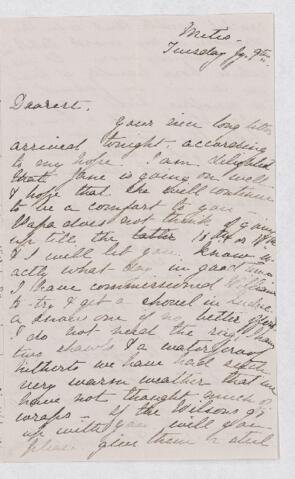 Metis.
Tuesday Jy. 9th.
Dearest.
Your nice long letter
arrived tonight, according
to my hope. I am delighted
that Jane is going on well
& hope that she will continue
to be a comfort to you
Papa does not think of going
up till the latter 16th or 18th
& I will let you know ex-
actly what day in good time
I have commissioned William
to try & get a shovel in
a if no better offers
I do not need the rug I have
two shawls & a waterproof
hitherto we have had such
very warm weather that we
have not thought much of
wraps - If the Wilsons go
up with you will you
please give them a